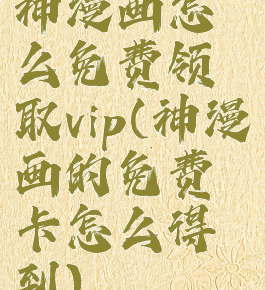 神漫画怎
么免费领
取vip(神漫
画的免费
卡怎么得
到)